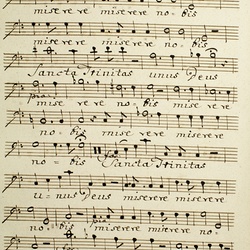 misere re miserere no=bis
miserere miserere no=bis
Sancta Trinitas unus Deus
mise re re no=bis mise re re
no=bis mise rere miserere
no=bis Sancta Trinitas
u=nus Deus miserere miserere
no=bis miserere miserere